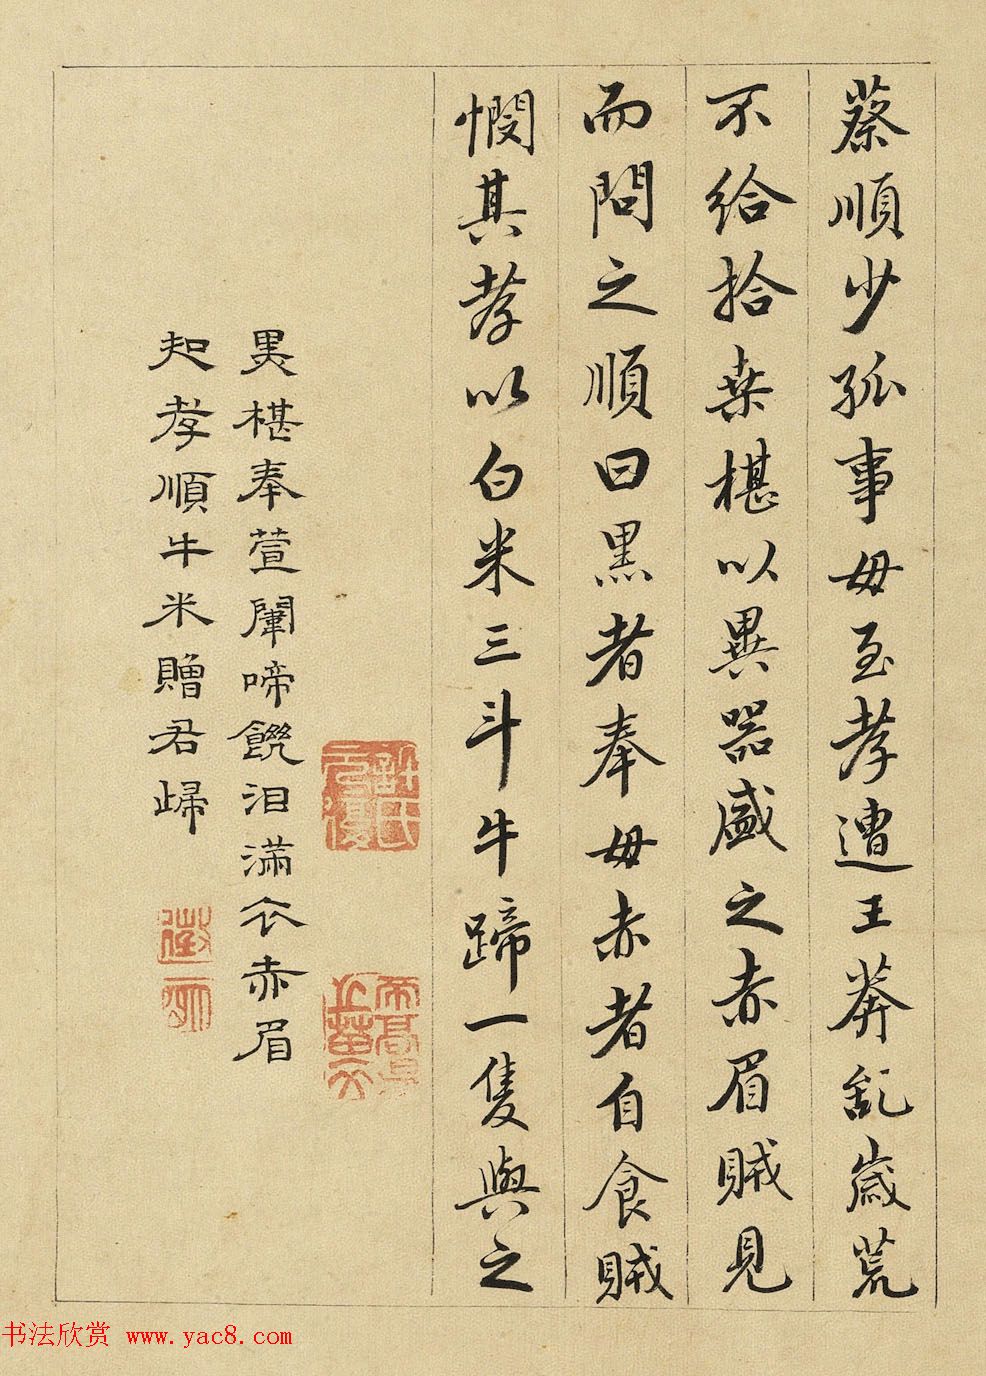 蔡順少孤事母至孝遭王莽乱歳荒
不給拾桒椹以異器盛之赤眉賊見
而問之順曰黒者奉母赤者自食賊
憫其孝以白米三斗牛蹄一隻與之
黒椹奉萱闈啼饑泪滿衣赤眉
知孝順牛米贈君歸
书法欣赏 www.yac8.com